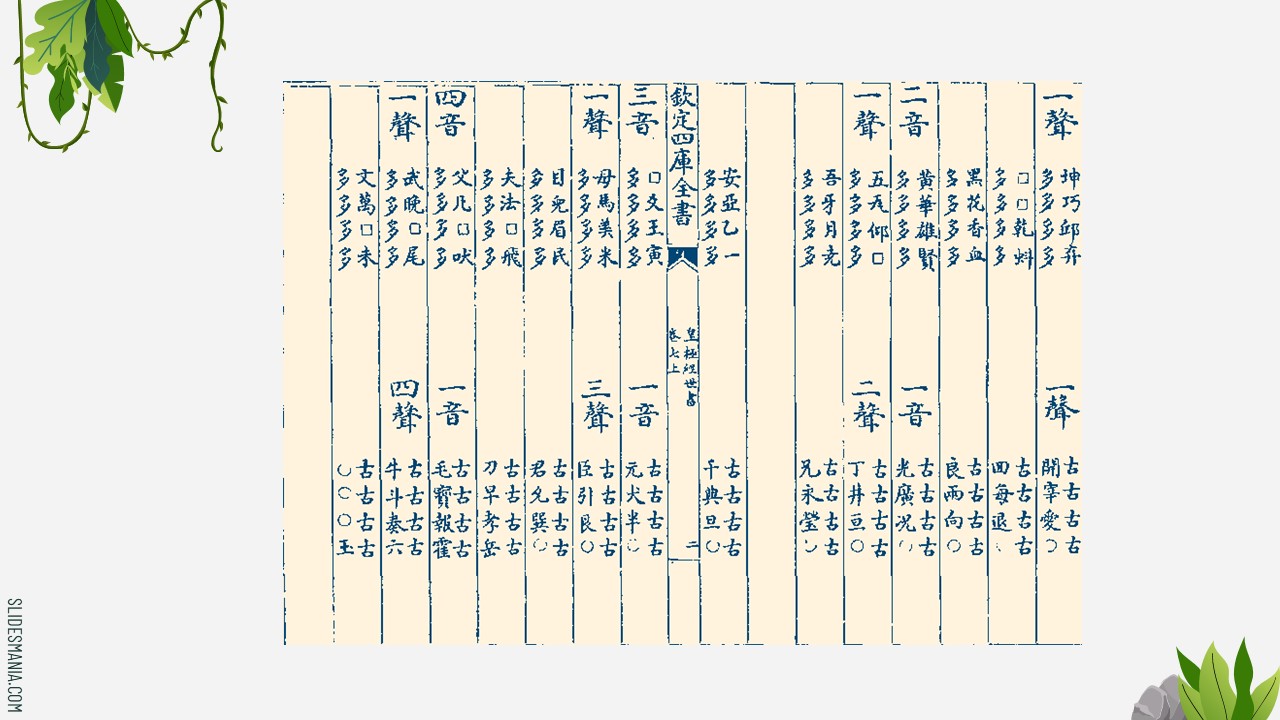 一聲
坤巧邱弃
多多多多
一聲
古古古古
開宰愛○
□□乾蚪
多多多多
古古古古
回每退○
黑花香血
多多多多
古古古古
良兩向○
二音
黃華雄賢
多多多多
一音
古古古古
光廣况○
一聲
五瓦仰□
多多多多
二聲
古古古古
丁井亘○
吾牙月尭
多多多多
古古古古
兄永瑩○
安亞乙一
多多多多
古古古古
千典旦○
欽定四庫全書
皇極經世書
卷七上
二
三音
□爻王寅
多多多多
一音
古古古古
元犬半○
一聲
母馬美米
多多多多
三聲
古古古古
臣引艮○
目皃眉民
多多多多
古古古古
君允巽○
夫法□飛
多多多多
古古古古
刀早孝岳
四音
父凡□吠
多多多多
一音
古古古古
毛寶報霍
一聲
武晚□尾
多多多多
四聲
古古古古
牛斗奏六
文萬□未
多多多多
古古古古
○○○玉
SLIDESMANIA.COM